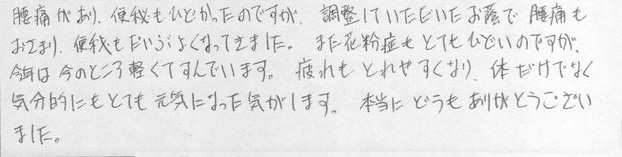 腰痛があり、便秘もひどかったのですが、調整していただいたお蔭で腰痛も
おさまり、便秘もだいぶよくなってきました。また花粉症もとてもひどいのですが、
今年は今のところ軽くてすんでいます。疲れもとれやすくなり、体だけでなく
気分的にもとても元気になった気がします。本当にどうもありがとうござい
ました。